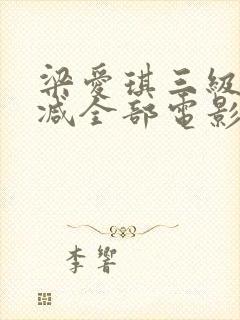 梁愛琪三級
减全部電影
李響